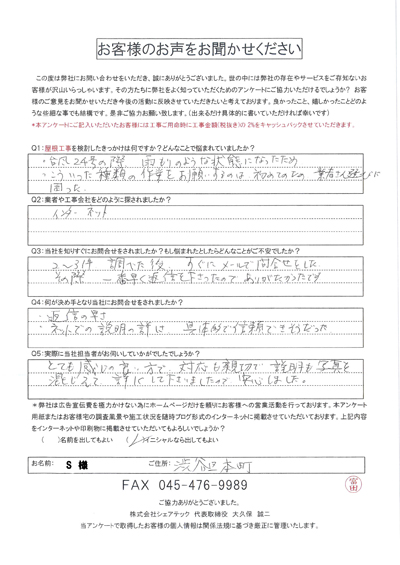 お客様のお声をお聞かせください
この度は弊社にお問い合わせをいただき、誠にありがとうございました。世の中には弊社の存在やサービスをご存知ないお
客様が沢山いらっしゃいます。その方たちに弊社をよく知っていただくためのアンケートにご協力いただけるでしょうか？ お客
様のご意見をお聞かせいただき今後の活動に反映させていきたいと考えております。良かったこと、嬉しかったことどのよ
うな些細な事でも結構です。是非ご協力お願い致します。（出来るだけ具体的に書いていただければ幸いです）
*本アンケートにご記入いただいたお客様には工事ご用命時に工事金額(税抜き)の2%をキャッシュバックさせていただきます。
Q1:屋根工事を検討したきっかけは何ですか？どんなことで悩まれていましたか？
・台風24号の際 雨もりのような状態になったため
・こういった種類の作業をお願いするのは 初めてのため 業者さん選びに
困った。
Q2:業者や工事会社をどのように探されましたか？
インターネット
Q3:当社を知りすぐにお問合せをされましたか？もし悩まれたとしたらどんなことがご不安でしたか？
2〜3件 調べた後 すぐに メールで問合せをした
その際 一番早く返信を下さったので ありがたかったです
Q4:何が決め手となり当社にお問合せをされましたか？
・返信の早さ
・ネットでの説明の詳しさ 具体的で信頼できそうだった
Q5:実際に当社担当者がお伺いしていかがでしたでしょうか？
とても感じの良い方で 対応も親切で 説明も写真を
混じえて 詳しくして下さいましたので 安心しました。
*弊社は広告宣伝費を極力かけない為にホームページだけを頼りにお客様への営業活動を行っております。本アンケート
用紙またはお客様宅の調査風景や施工状況を随時ブログ形式のインターネットに掲載させていただいております。上記内容
をインターネットや印刷物に掲載させていただいてもよろしいでしょうか？
( )名前を出してもよい ( レ )イニシャルなら出してもよい
お名前: S 様 ご住所: 渋谷区本町
FAX 045-476-9989
ご協力ありがとうございました。
株式会社シェアテック 代表取締役 大久保 誠二
当アンケートで取得したお客様の個人情報は関係法規に基づき厳正に管理いたします。